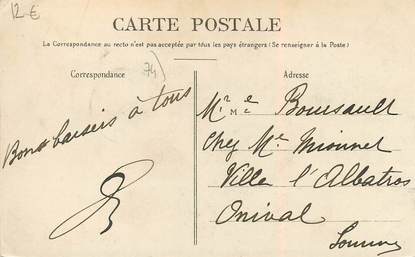 12 €
CARTE POSTALE
La Correspondance au recto n'est pas acceptée par tous les pays étrangers (Se renseigner à la Poste)
Correspondance
74
Bons baisers à tous
Adresse
Mr Me Boursault
Chez Me Mionnet
Ville l'Albatros
Onival
Somme